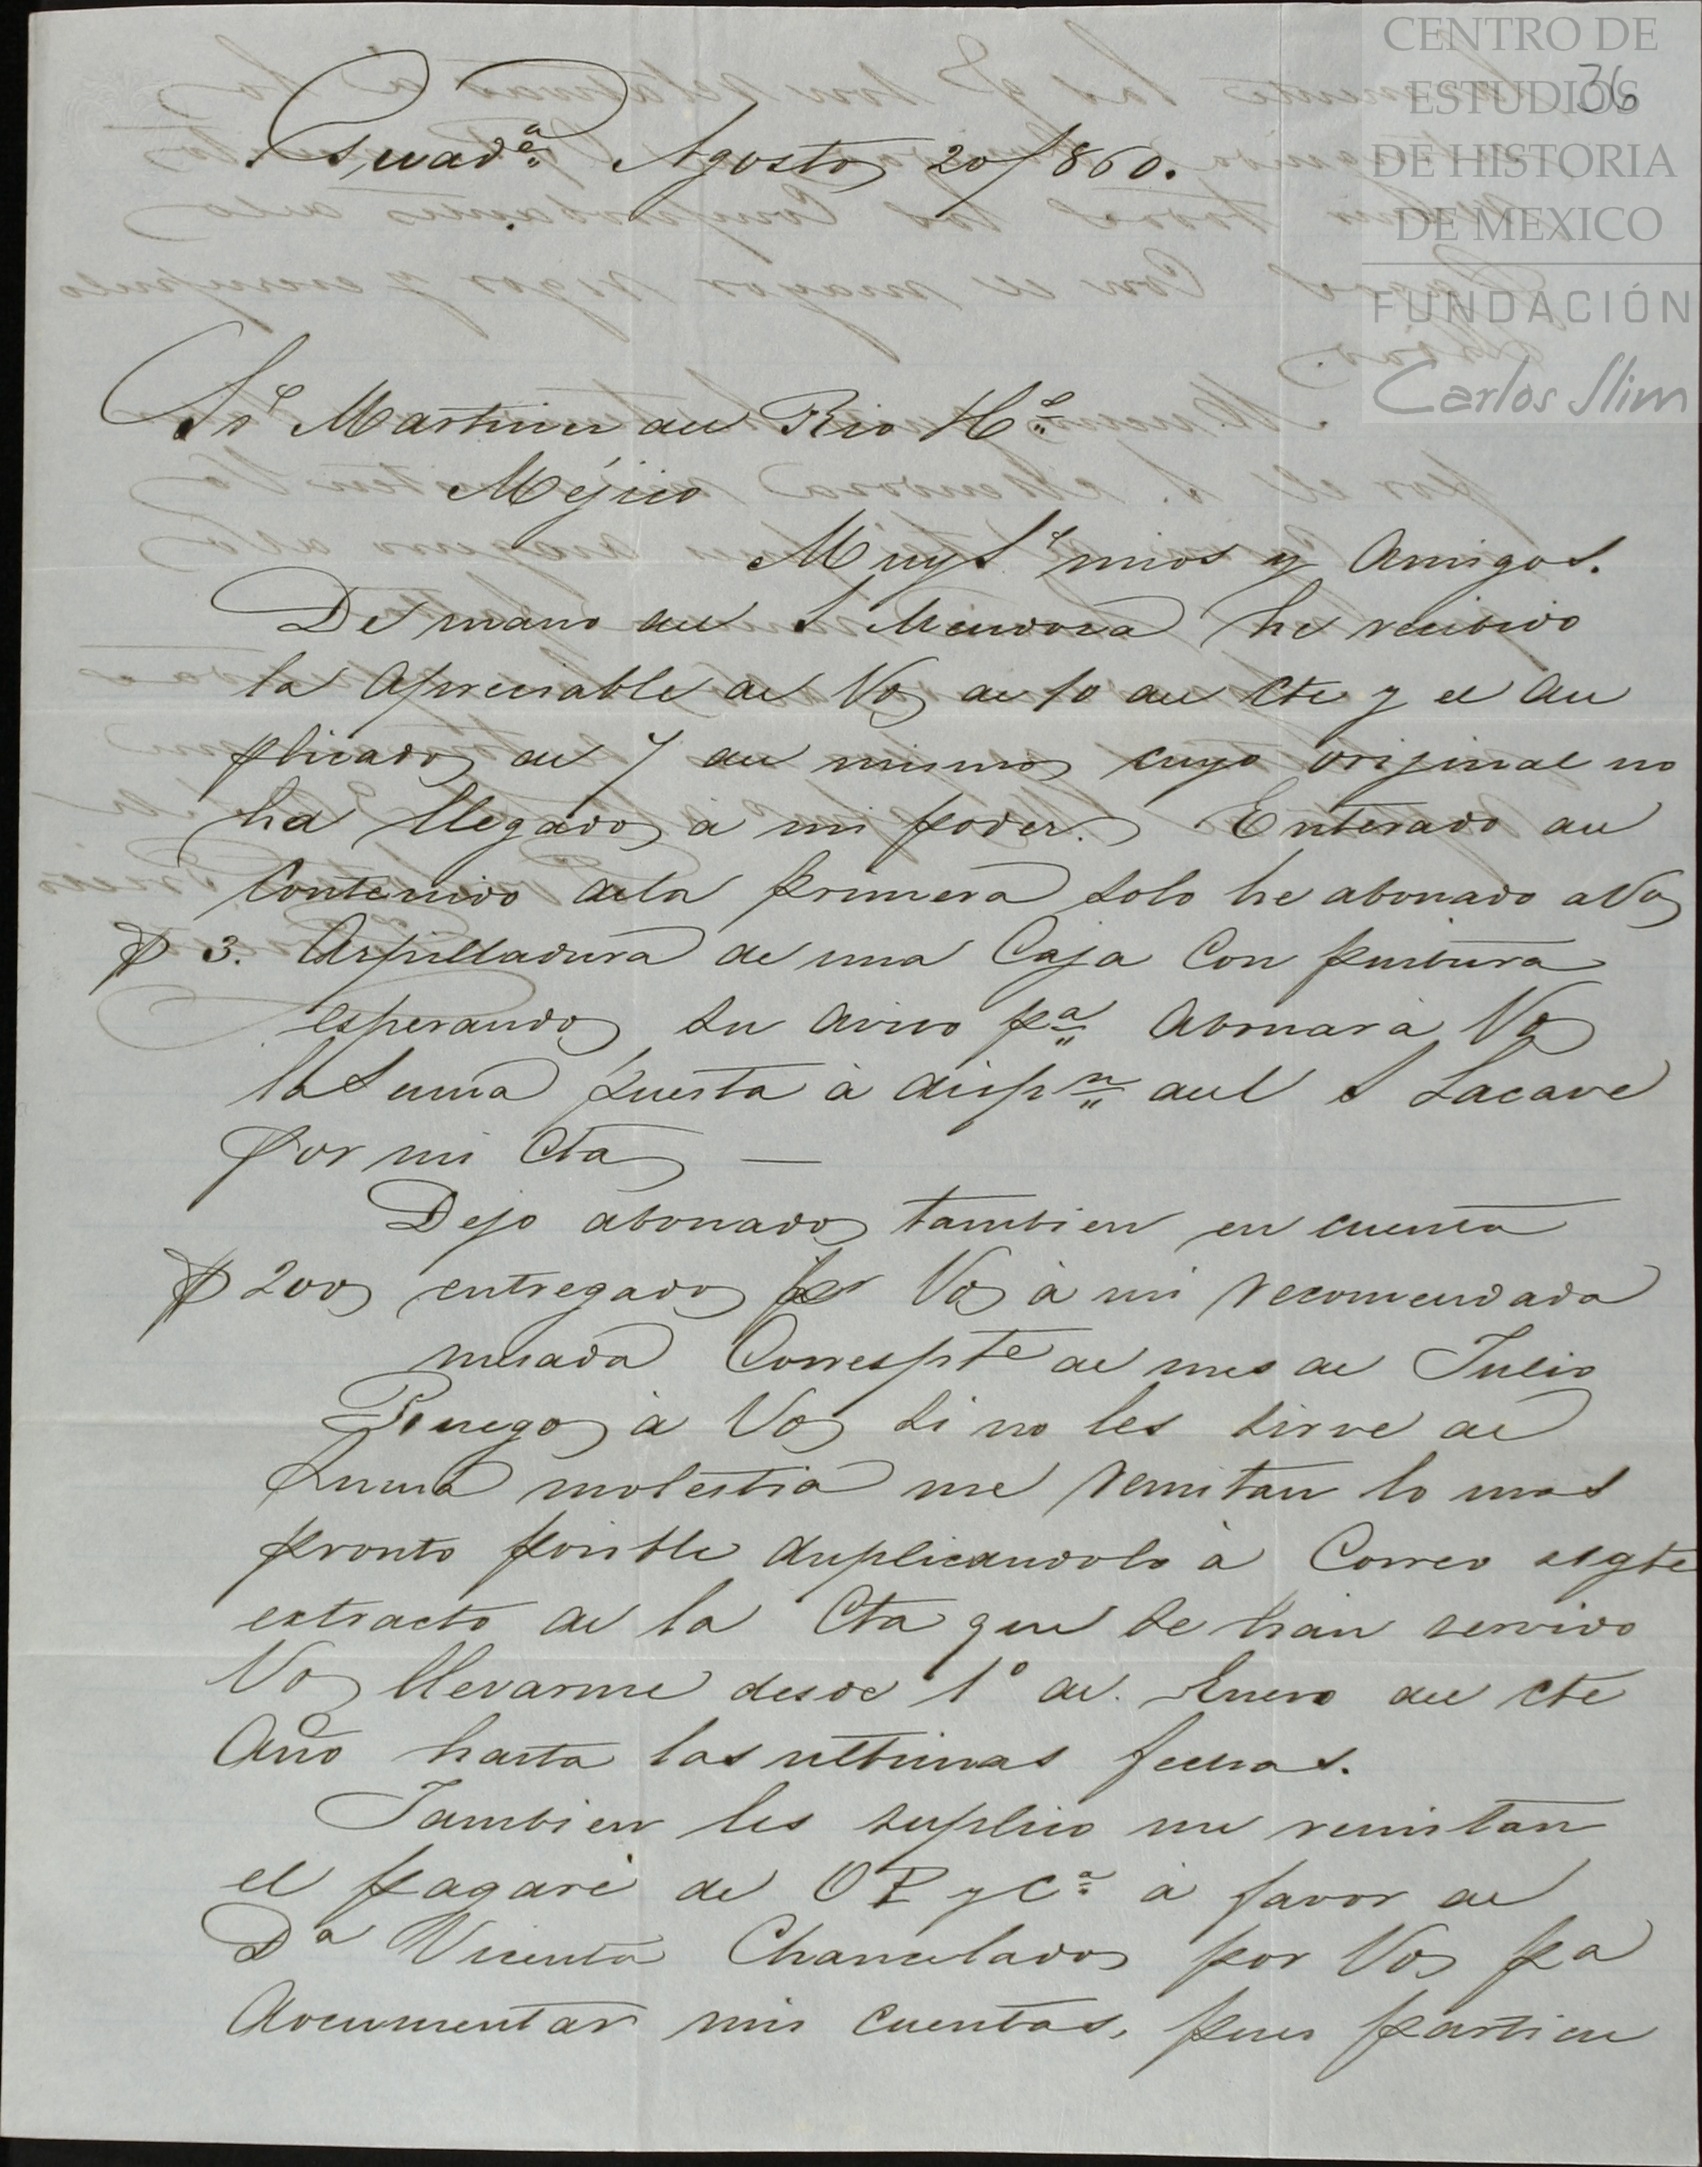 CENTRO DE
ESTUDIOS
DE HISTORIA
DE MEXICO
FUNDACIÓN
Carlos Slim
36
Guad.ª Agosto 20/860.
Srs Martinez del Rio H.s
Méjico
Muy Ss mios y Amigos.
De mano del S Mendoza he recibido
la apreciable de Vs de 10 del Cte y el du
plicado de 7 del mismo cuyo orijinal no
ha llegado à mi poder. Enterado del
Contenido dela primera solo he abonado a Vs
$ 3. Arpilladura de una Caja Con pintura
esperando su aviso pª abonar à Vs
la Suma puesta à dispn del S Lacave
por mi Cta —
Dejo abonado tambien en cuenta
$ 200 entregado pr Vs à mi recomendada
mesada Correspte de mes de Julio
Ruego à Vs si no les sirve de
Suma molestia me remitan lo mas
pronto posible duplicandolo à Correo sigte
extracto de la Cta que se han servido
Vs llevarme desde 1º de Enero del cte
Año hasta las ultimas fechas.
Tambien les suplico me remitan
el pagaré de OP y Cª à favor de
Dª Vicenta Chancelado por Vs pa
documentar mis cuentas, pues particu